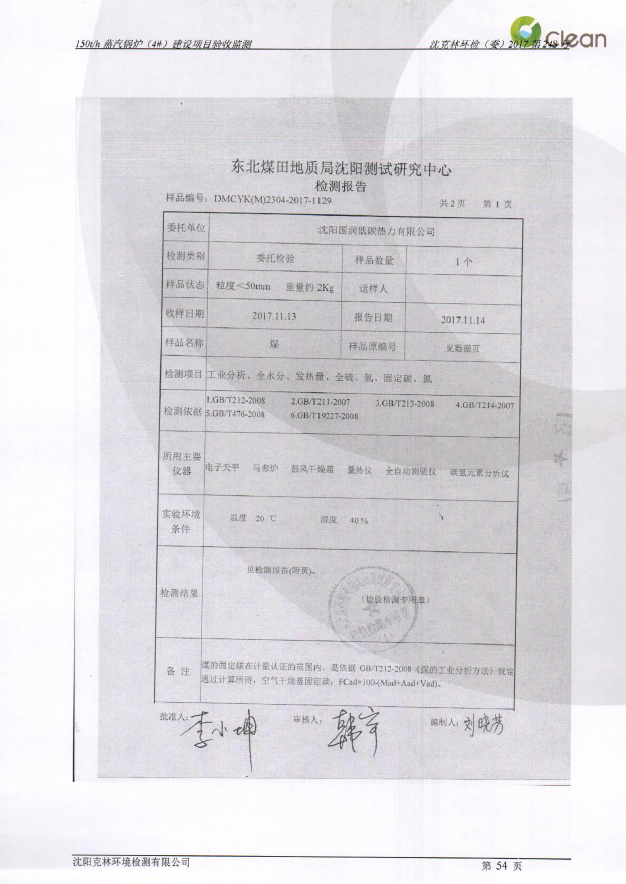 Clean
150t/h 蒸汽锅炉（4#）建设项目验收监测 沈克林环检（委）2017 第 248 号
东北煤田地质局沈阳测试研究中心
检测报告
样品编号：DMCYK(M)2304-2017-1129 共 2 页 第 1 页
委托单位 沈阳国润低碳热力有限公司
检测类别 委托检验 样品数量 1 个
样品状态 粒度＜50mm 重量约 2Kg 送样人
收样日期 2017.11.13 报告日期 2017.11.14
样品名称 煤 样品原编号 见数据页
检测项目 工业分析、全水分、发热量、全硫、氢、固定碳、氮
检测依据 1.GB/T212-2008 2.GB/T211-2007 3.GB/T213-2008 4.GB/T214-2007
5.GB/T476-2008 6.GB/T19227-2008
所用主要
仪器 电子天平 马弗炉 鼓风干燥箱 量热仪 全自动测硫仪 碳氢元素分析仪
实验环境
条件 温度 20 ℃ 湿度 40%
检测结果 见检测报告(附页)。
（检验检测专用章）
备 注 煤的固定碳在计量认证的范围内，是依据 GB/T212-2008《煤的工业分析方法》规定
通过计算所得，空气干燥基固定碳：FCad=100-(Mad+Aad+Vad)。
批准人：李小坤 审核人：韩宇 编制人：刘晓芳
沈阳克林环境检测有限公司 第 54 页